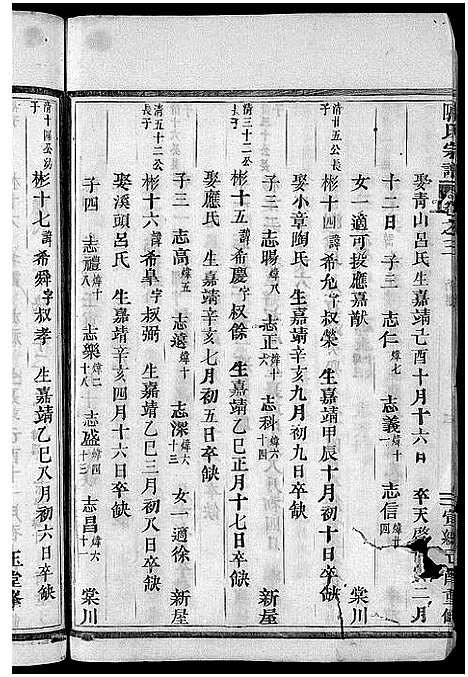 娶青山呂氏生嘉靖己酉十月十六日 卒天 二月
十二日 子三 志仁 煒七 志義 煒十 志信 煒廿四
女一適可投應嘉猷 棠川
清廿五公長子 彬十四 諱希允 字叔榮 生嘉靖甲辰十月初十日卒缺
娶小章陶氏 生嘉靖辛亥九月初九日卒缺
子三 志暘 煒八 志正 煒十六 志科 煒六十四 新屋
清三十二公長子 彬十五 諱希慶 字叔餘 生嘉靖乙巳正月十七日卒缺
娶應氏 生嘉靖辛亥七月初五日卒缺
子三 志高 煒五 志遠 煒十 志深 煒十三 女一適徐 新屋
清五十二公長子 彬十六 諱希皐 字叔弼 生嘉靖乙巳三月初八日卒缺
娶溪頭呂氏 生嘉靖辛亥四月十六日卒缺
子四 志禮 煒十 志樂 煒二十八 志盛 煒四十三 志昌 煒六十一 棠川
清十四公幼子 彬十七 諱希舜 字叔孝 生嘉靖乙巳八月初六日卒缺